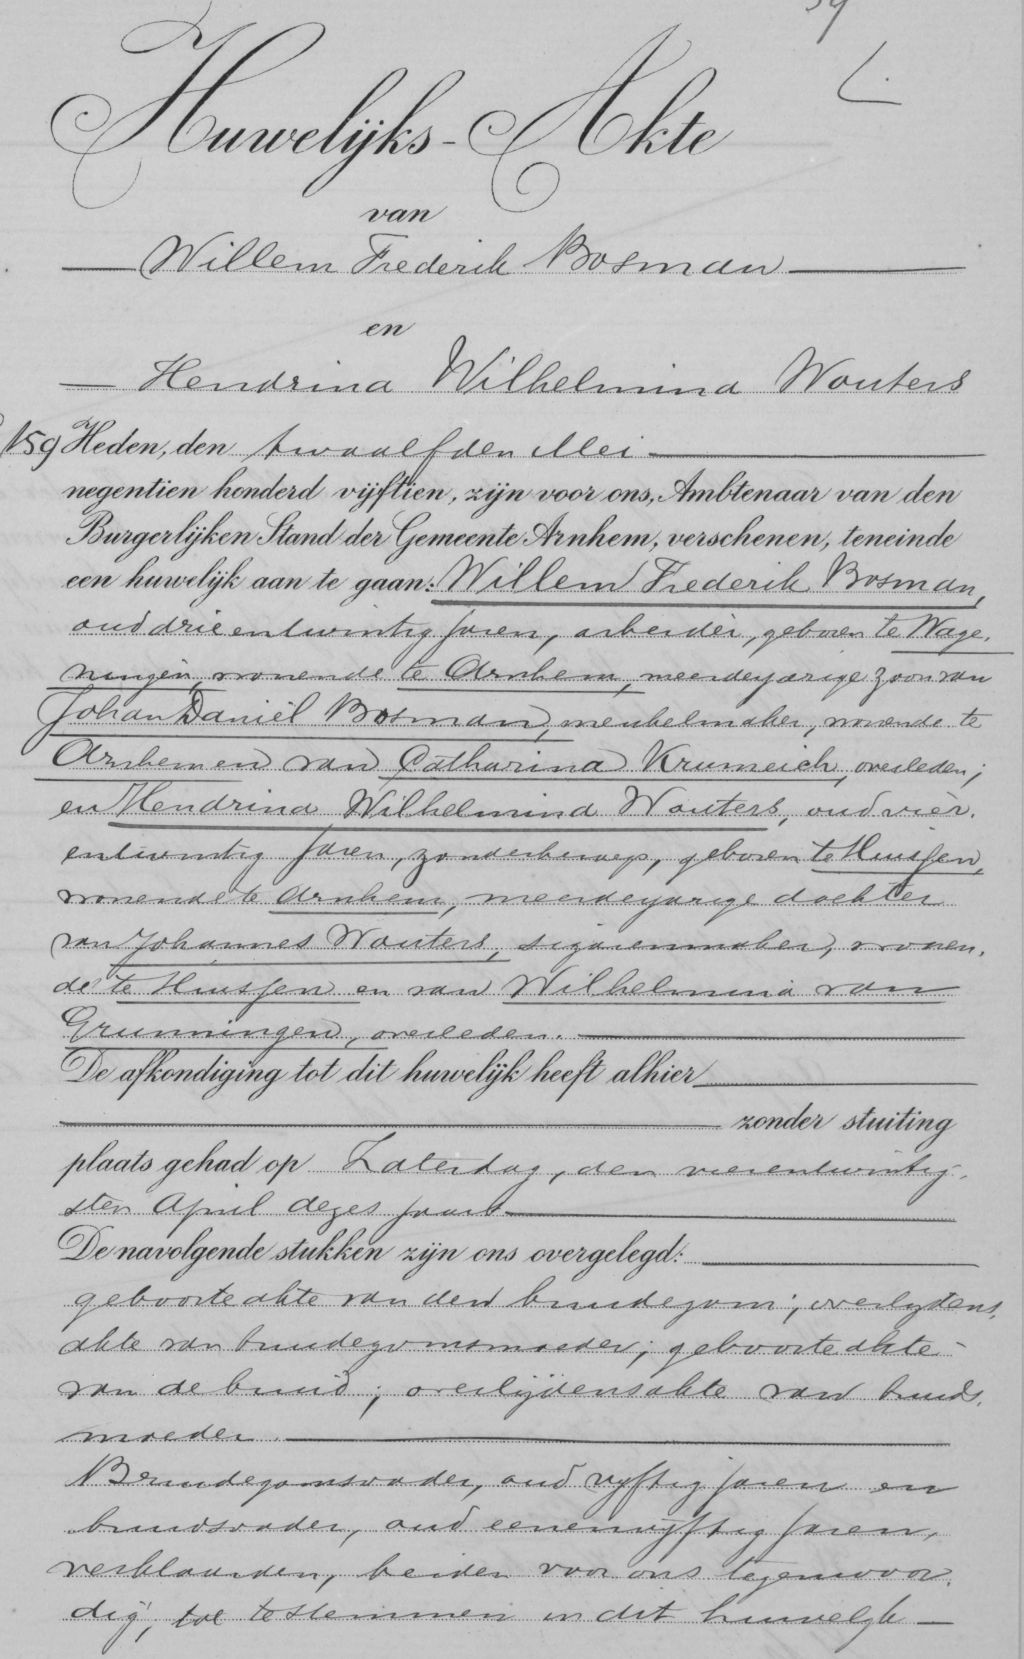 Huwelijks-Akte
van
Willem Frederik Bosman
en
Hendrina Wilhelmina Wouters
159 Heden, den twaalfden Mei
negentien honderd vijftien, zijn voor ons, Ambtenaar van den
Burgerlijken Stand der Gemeente Arnhem, verschenen, teneinde
een huwelijk aan te gaan: Willem Frederik Bosman,
oud drieentwintig jaren, arbeider, geboren te Wage-
ningen, wonende te Arnhem, meerderjarige zoon van
Johan Daniël Bosman, meubelmaker, wonende te
Arnhem en van Catharina Krumeich, overleden;
en Hendrina Wilhelmina Wouters, oud vier-
entwintig jaren, zonder beroep, geboren te Huissen,
wonende te Arnhem, meerderjarige dochter
van Johannes Wouters, sigarenmaker, wonen-
de te Huissen en van Wilhelmina van
Grunningen, overleden.
De afkondiging tot dit huwelijk heeft alhier
zonder stuiting
plaats gehad op Zaterdag, den vierentwintig-
sten April dezes jaars
De navolgende stukken zijn ons overgelegd:
geboorteakte van den bruidegom; overlijdens-
akte van bruidegomsmoeder; geboorteakte
van de bruid; overlijdensakte van bruids-
moeder.
Bruidegomsvader, oud vijftig jaren en
bruidsvader, oud eenenvijftig jaren,
verklaarden, beiden voor ons tegenwoor-
dig, toe te stemmen in dit huwelijk